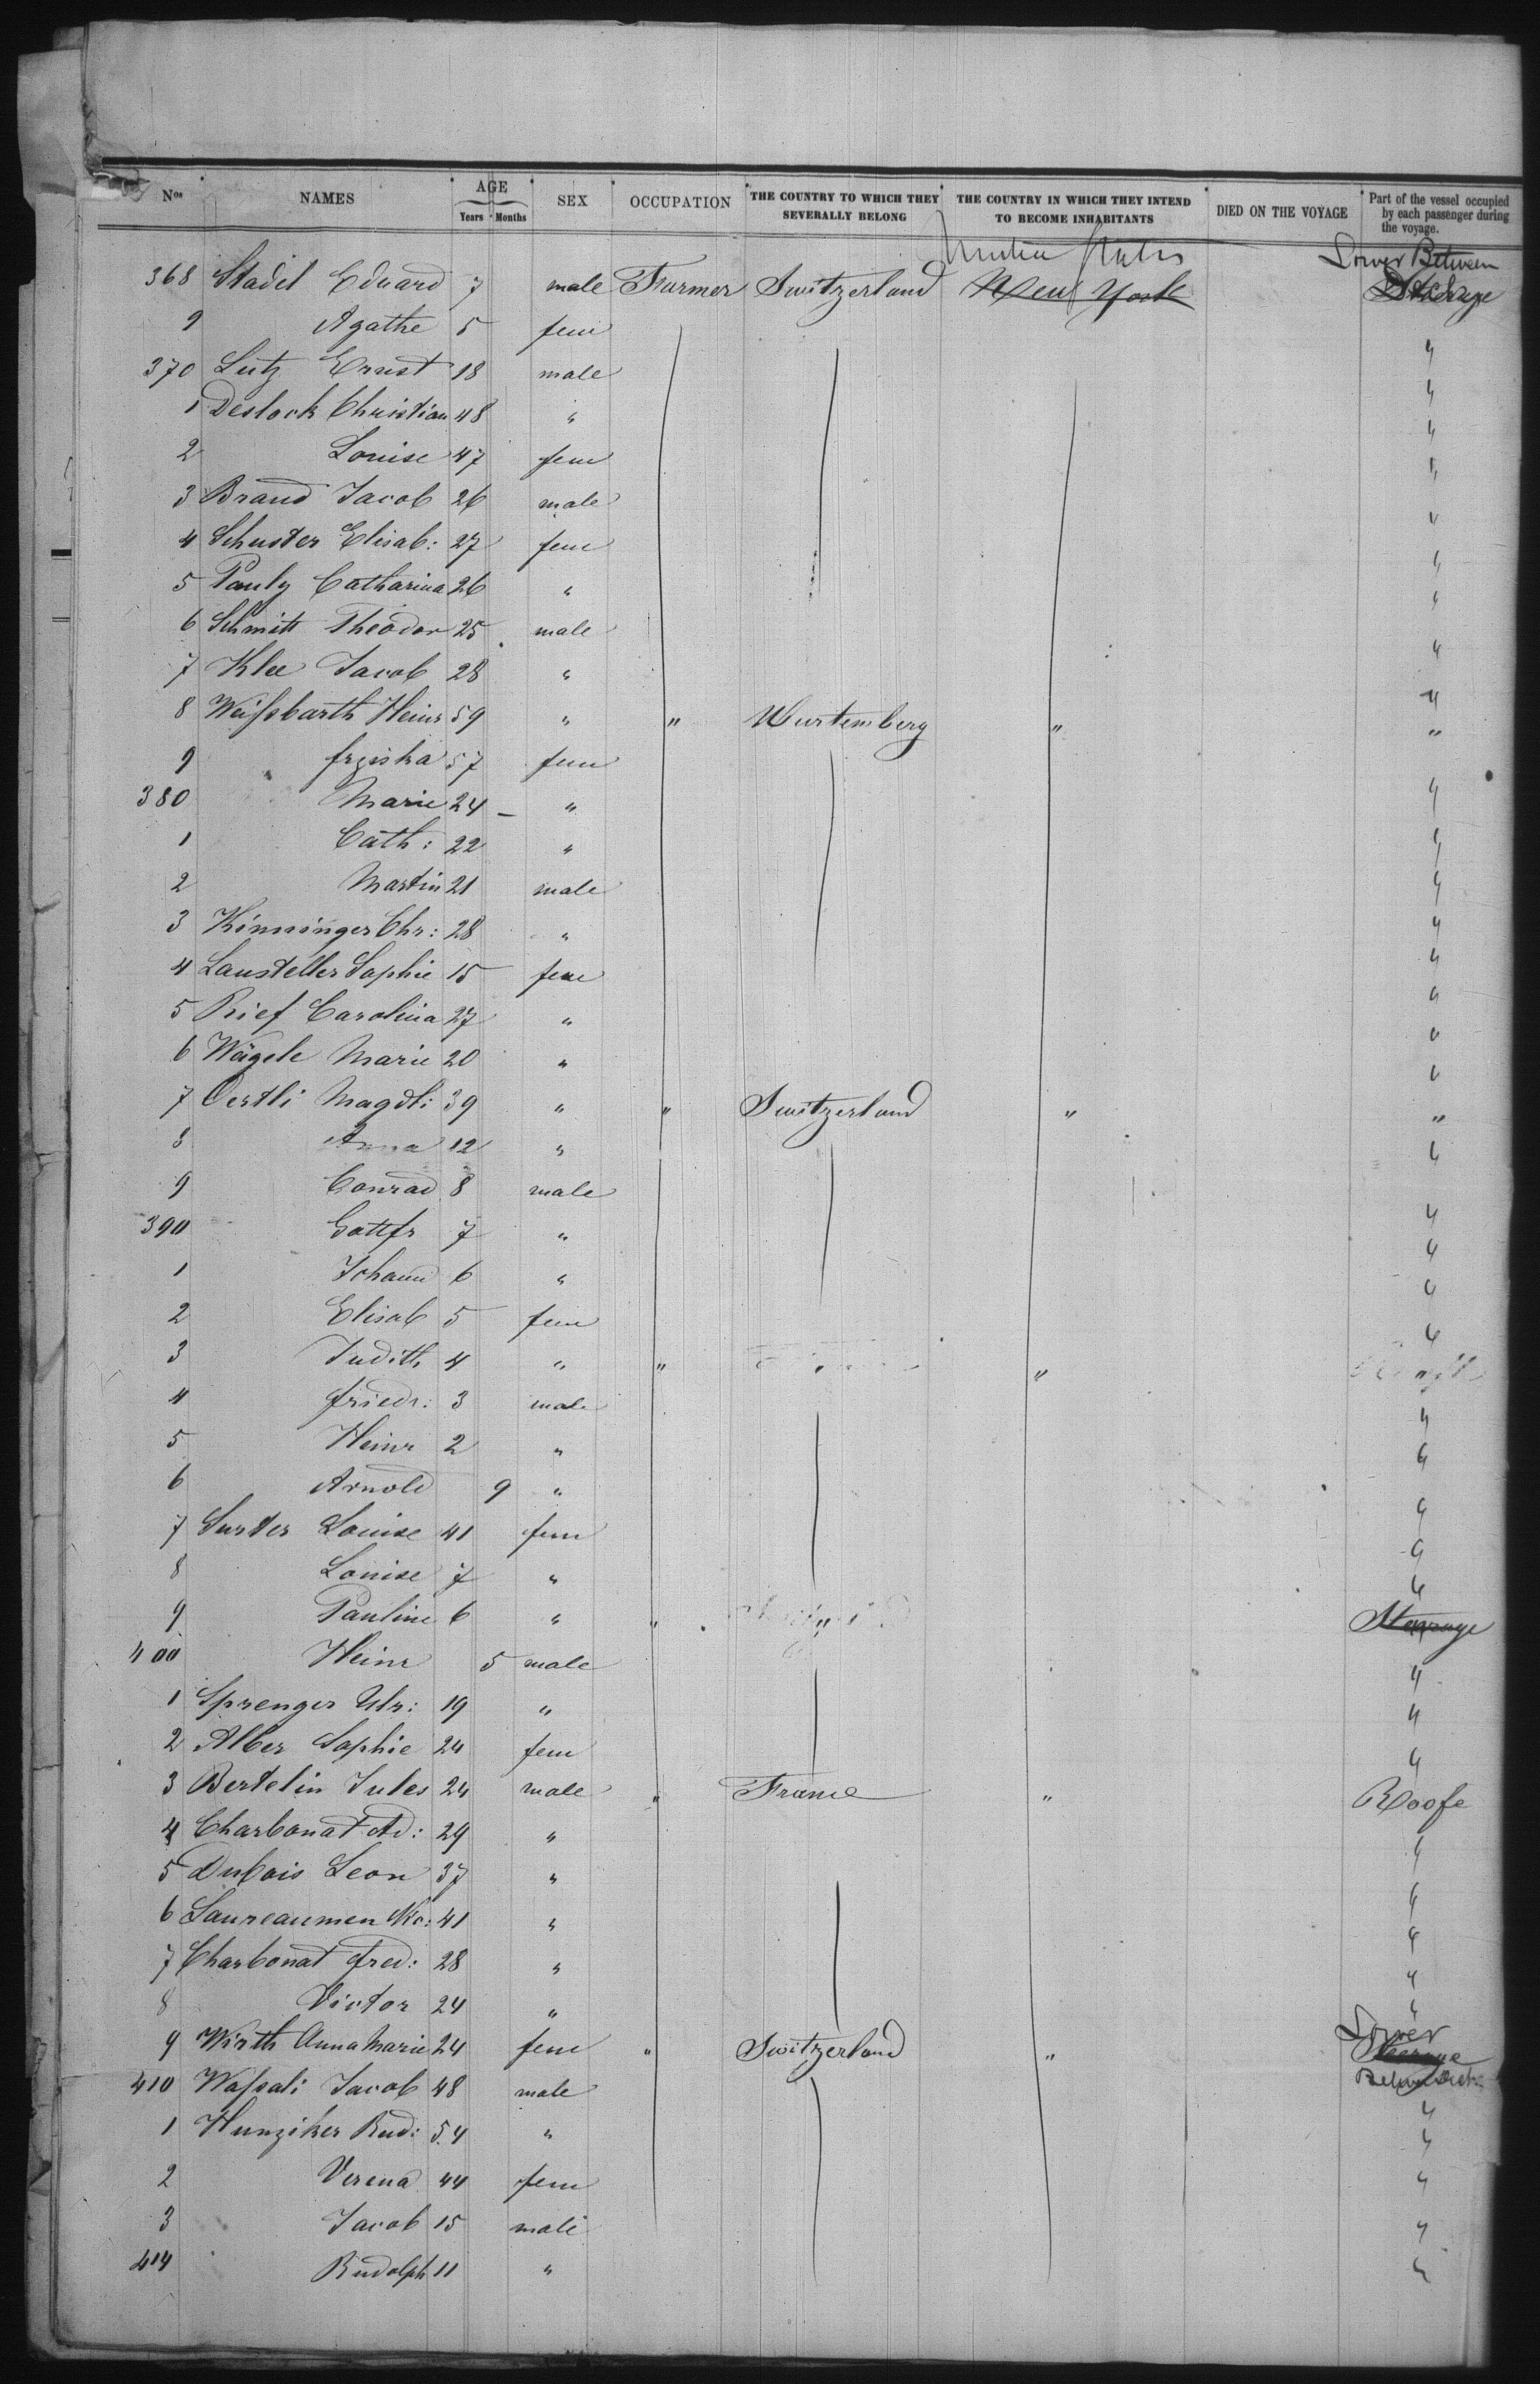 Nos NAMES AGE Years Months SEX OCCUPATION THE COUNTRY TO WHICH THEY SEVERALLY BELONG THE COUNTRY IN WHICH THEY INTEND TO BECOME INHABITANTS DIED ON THE VOYAGE Part of the vessel occupied by each passenger during the voyage.
United States Lower Between
368 Stadel Eduard 7 male Farmer Switzerland New York
9 Agathe 5 fem
370 Lutz Ernst 18 male "
1 Deslock Christian 48 " "
2 Louise 47 fem "
3 Brand Jacob 26 male "
4 Schuster Elisab: 27 fem "
5 Pauly Catharina 26 " "
6 Schmitt Theodor 25 male "
7 Klee Jacob 28 " "
8 Weifsbarth Heinr 59 " " Wurtemberg " "
9 frziska 57 fem "
380 Marie 24 – " "
1 Cath: 22 " "
2 Martin 21 male "
3 Kinninger Chr: 28 " "
4 Lausteller Sophie 15 fem "
5 Rief Carolina 27 " "
6 Wägele Marie 20 " "
7 Oertli Magdl: 39 " " Switzerland " "
8 Anna 12 " "
9 Conrad 8 male
390 Gottfr 7 " "
1 Johann 6 " "
2 Elisab 5 fem "
3 Judith 4 " " "
4 friedr: 3 male "
5 Heinr 2 " "
6 Arnold 9 "
7 Surter Louise 41 fem "
8 Louise 7 " "
9 Pauline 6 " " " Steerage
400 Heinr 5 male "
1 Sprenger Ulr: 19 " "
2 Alber Sophie 24 fem "
3 Bertelin Jules 24 male " France " Roofe
4 Charbonat Ad: 29 " "
5 Dubois Leon 37 " "
6 Laureaumen Nic: 41 " "
7 Charbonat fred: 28 " "
8 Victor 24 " "
9 Wirth Anna Marie 24 fem " Switzerland " Lower Steerage
410 Wafsali Jacob 48 male
1 Hunziker Rud: 54 " "
2 Verena 44 fem "
3 Jacob 15 male "
414 Rudolph 11 " "